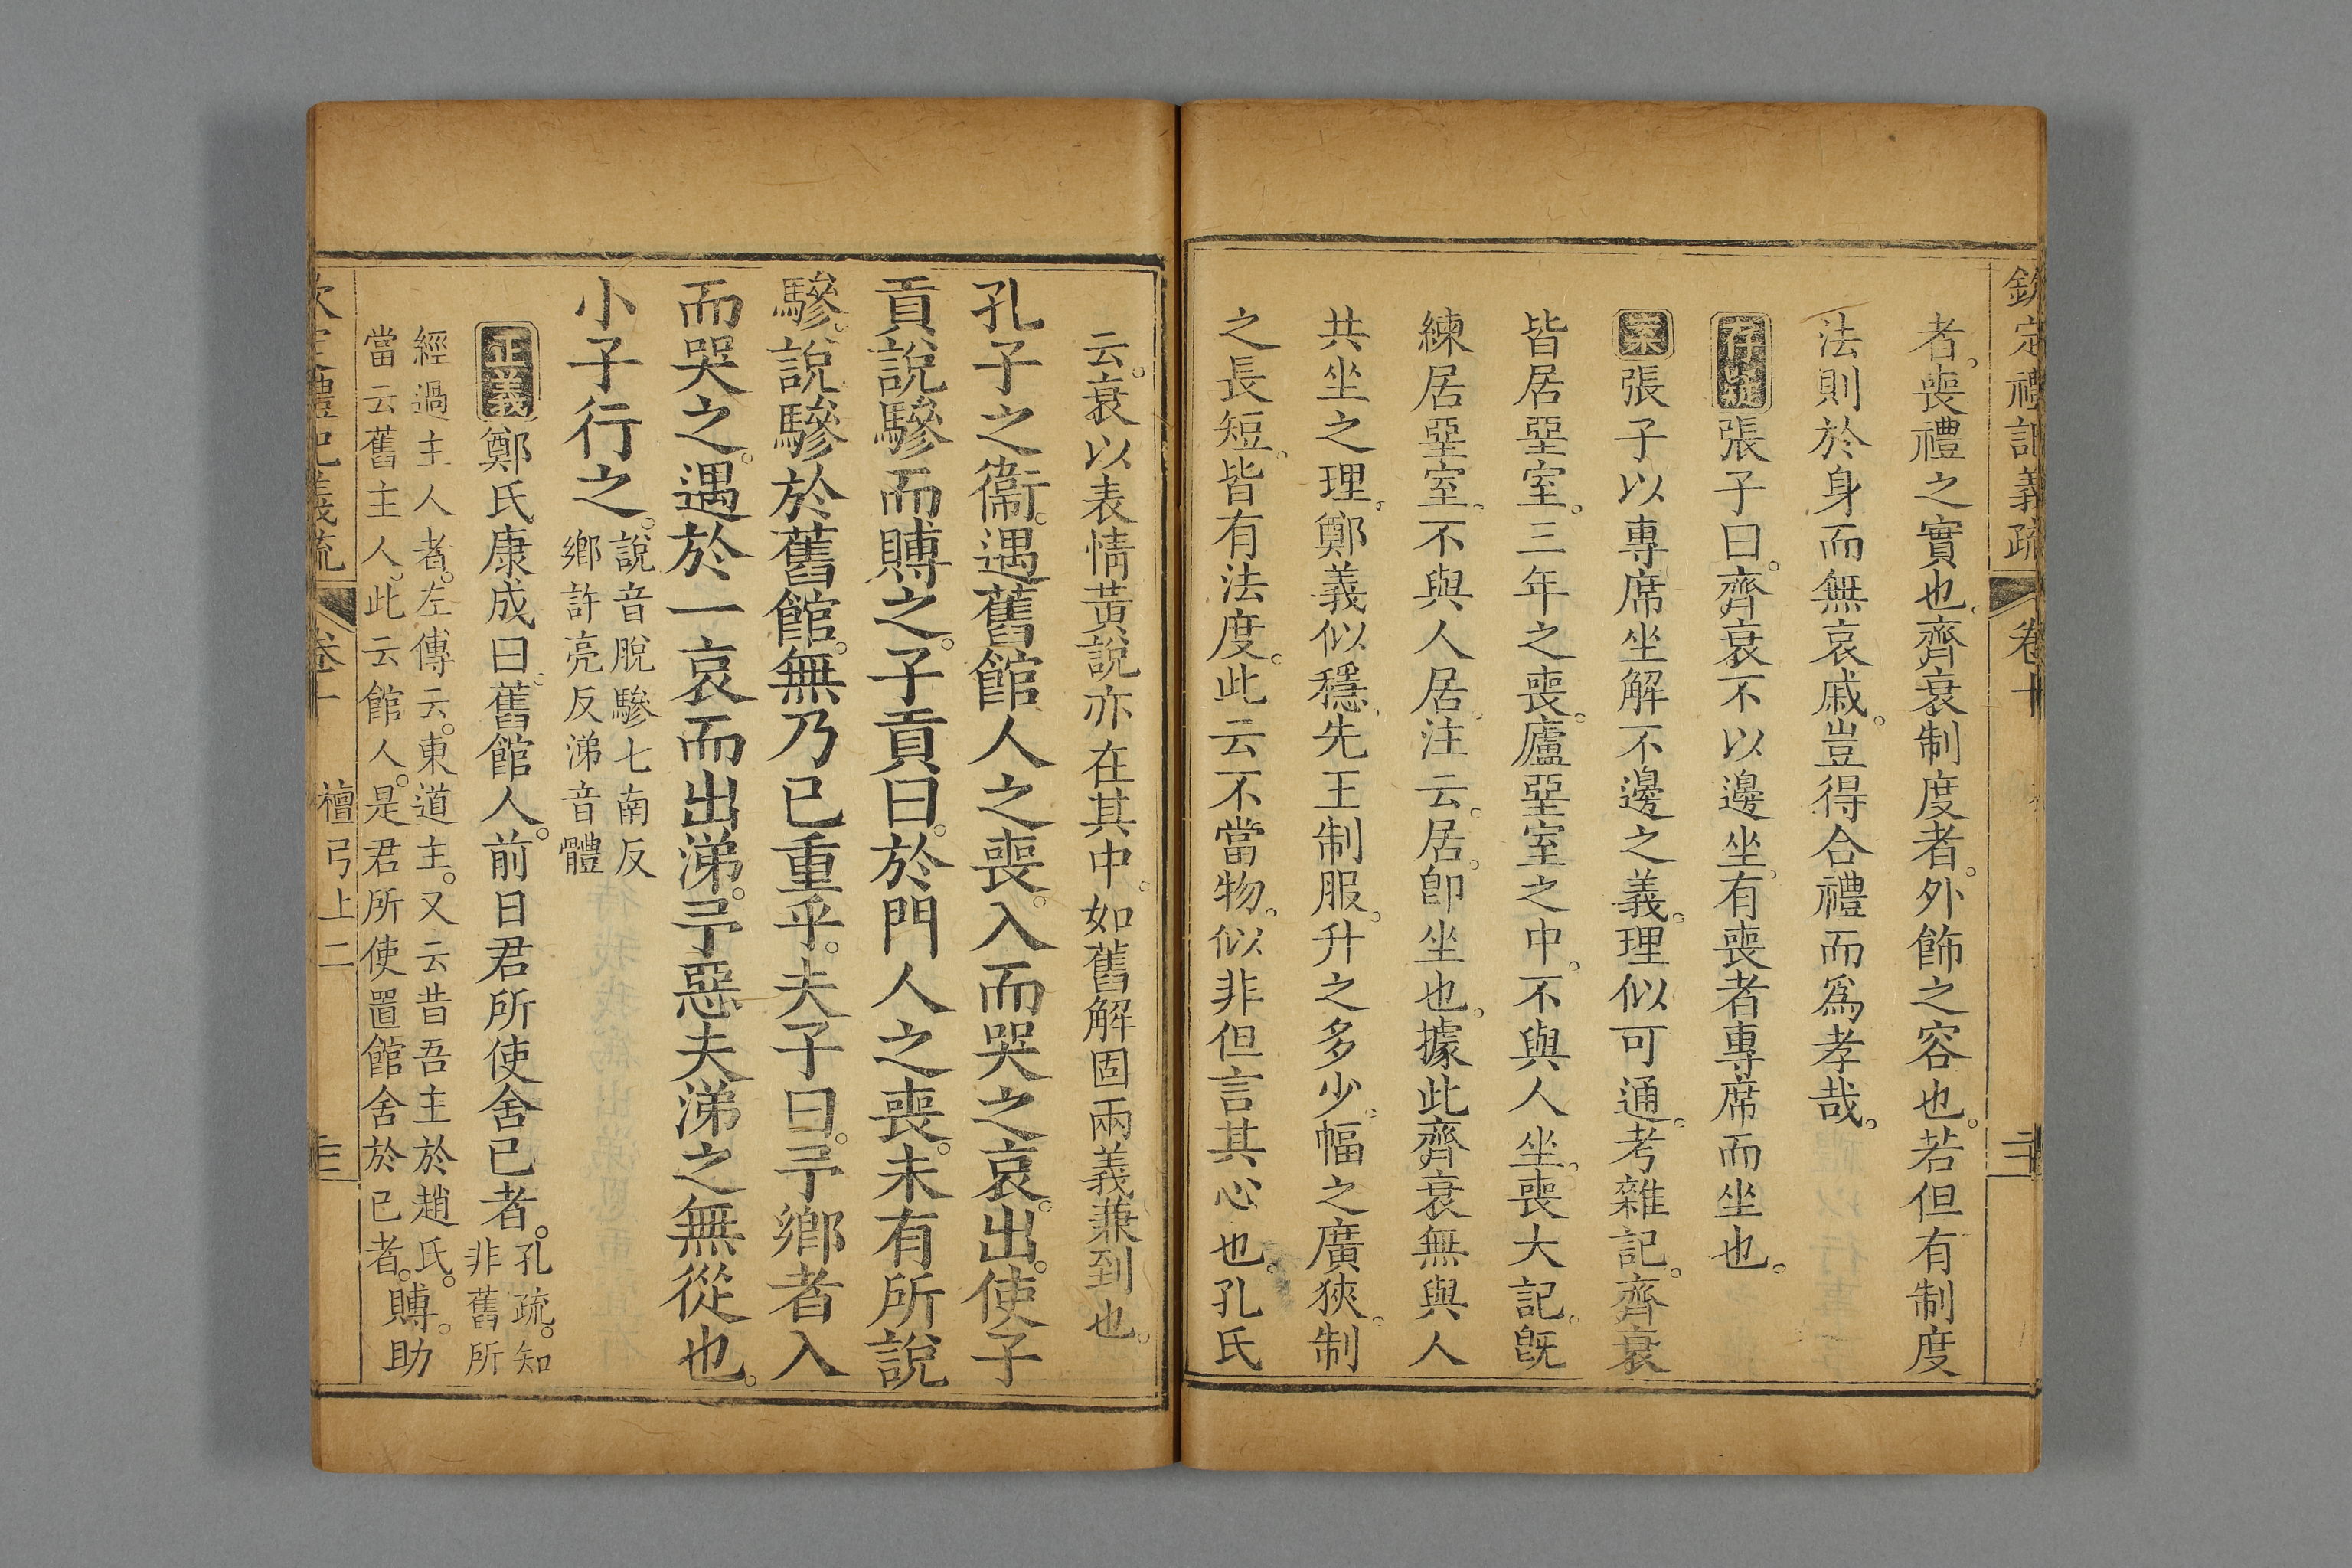 欽定禮記義疏 卷十
者。喪禮之實也。齊衰制度者。外飾之容也。若但有制度
法則於身而無哀戚。豈得合禮而為孝哉。
存疑張子曰。齊衰不以邊坐。有喪者專席而坐也。
案張子以專席坐解不邊之義。理似可通。考雜記。齊衰
皆居堊室。三年之喪。廬堊室之中。不與人坐。喪大記。旣
練居堊室。不與人居。注云。居。卽坐也。據此齊衰無與人
共坐之理。鄭義似穩。先王制服。升之多少。幅之廣狹。制
之長短。皆有法度。此云不當物。似非但言其心也。孔氏
云。衰以表情。黃說亦在其中。如舊解固兩義兼到也。
孔子之衞。遇舊館人之喪。入而哭之哀。出。使子
貢說驂而賻之。子貢曰。於門人之喪。未有所說
驂。說驂於舊館。無乃已重乎。夫子曰。予鄉者入
而哭之。遇於一哀而出涕。予惡夫涕之無從也。
小子行之。
說音脫驂七南反
鄉許亮反涕音體
正義鄭氏康成曰。舊館人。前日君所使舍已者。
孔疏。知
非舊所
經過主人者。左傳云。東道主。又云昔吾主於趙氏。
當云舊主人。此云館人。是君所使置館舍於已者。
賻。助
欽定禮記義疏 卷十 檀弓上二